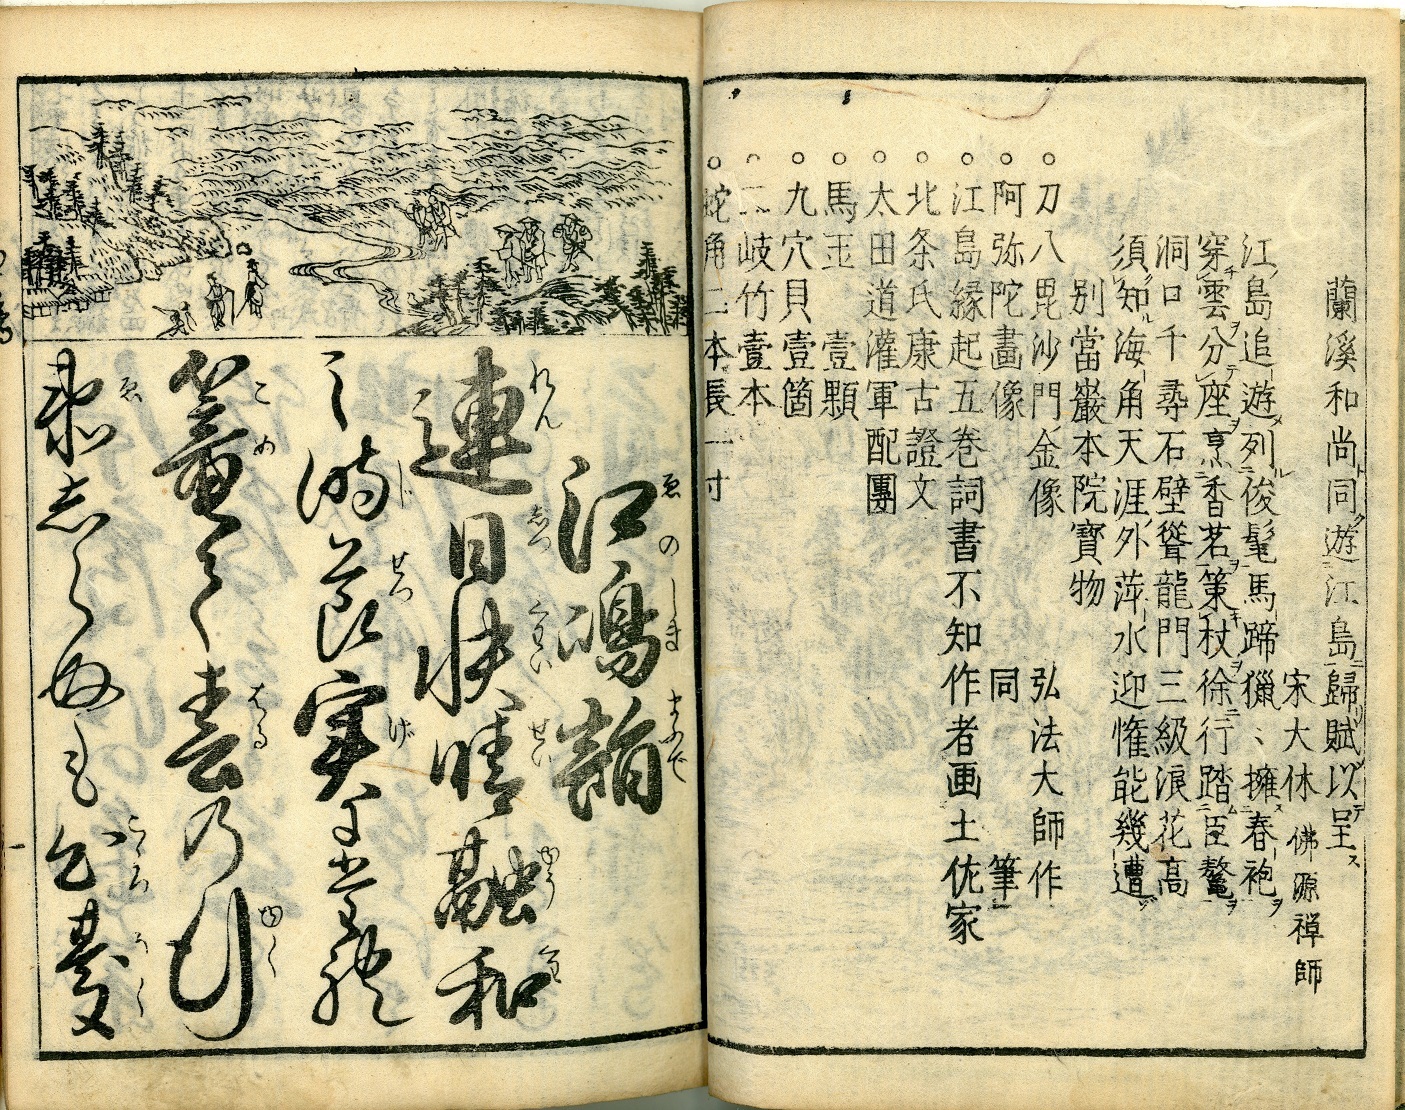 蘭溪和尚同遊江島歸賦以呈
宋大休 佛源禅師
江島追遊列俊髦馬蹄獵〻擁春袍
穿雲分座烹香茗策杖徐行踏巨鼇
洞口千尋石壁聳龍門三級浪花高
須知海角天涯外萍水迎惟能幾遭
別當巖本院寳物
○刀八毘沙門金像 弘法大師作
○阿弥陀畫像 同 筆
○江島縁起五巻詞書不知作者画土佐家
○北条氏康古證文
○太田道灌軍配團
○馬玉 壹顆
○九穴貝壹箇
○二岐竹壹本
○蛇角二本長一寸
江嶋詣
連日快晴融和
之時節実
籠て春の行
衛志らぬも